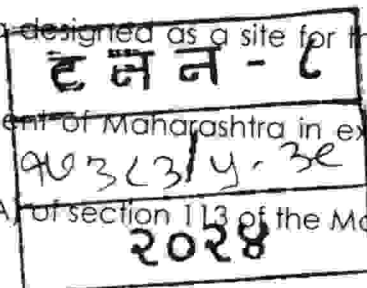 designed as a site for
ट न न - ८
ent of Maharashtra in
१७३८३/५. ३९
A) of section 113 of the
२०२४